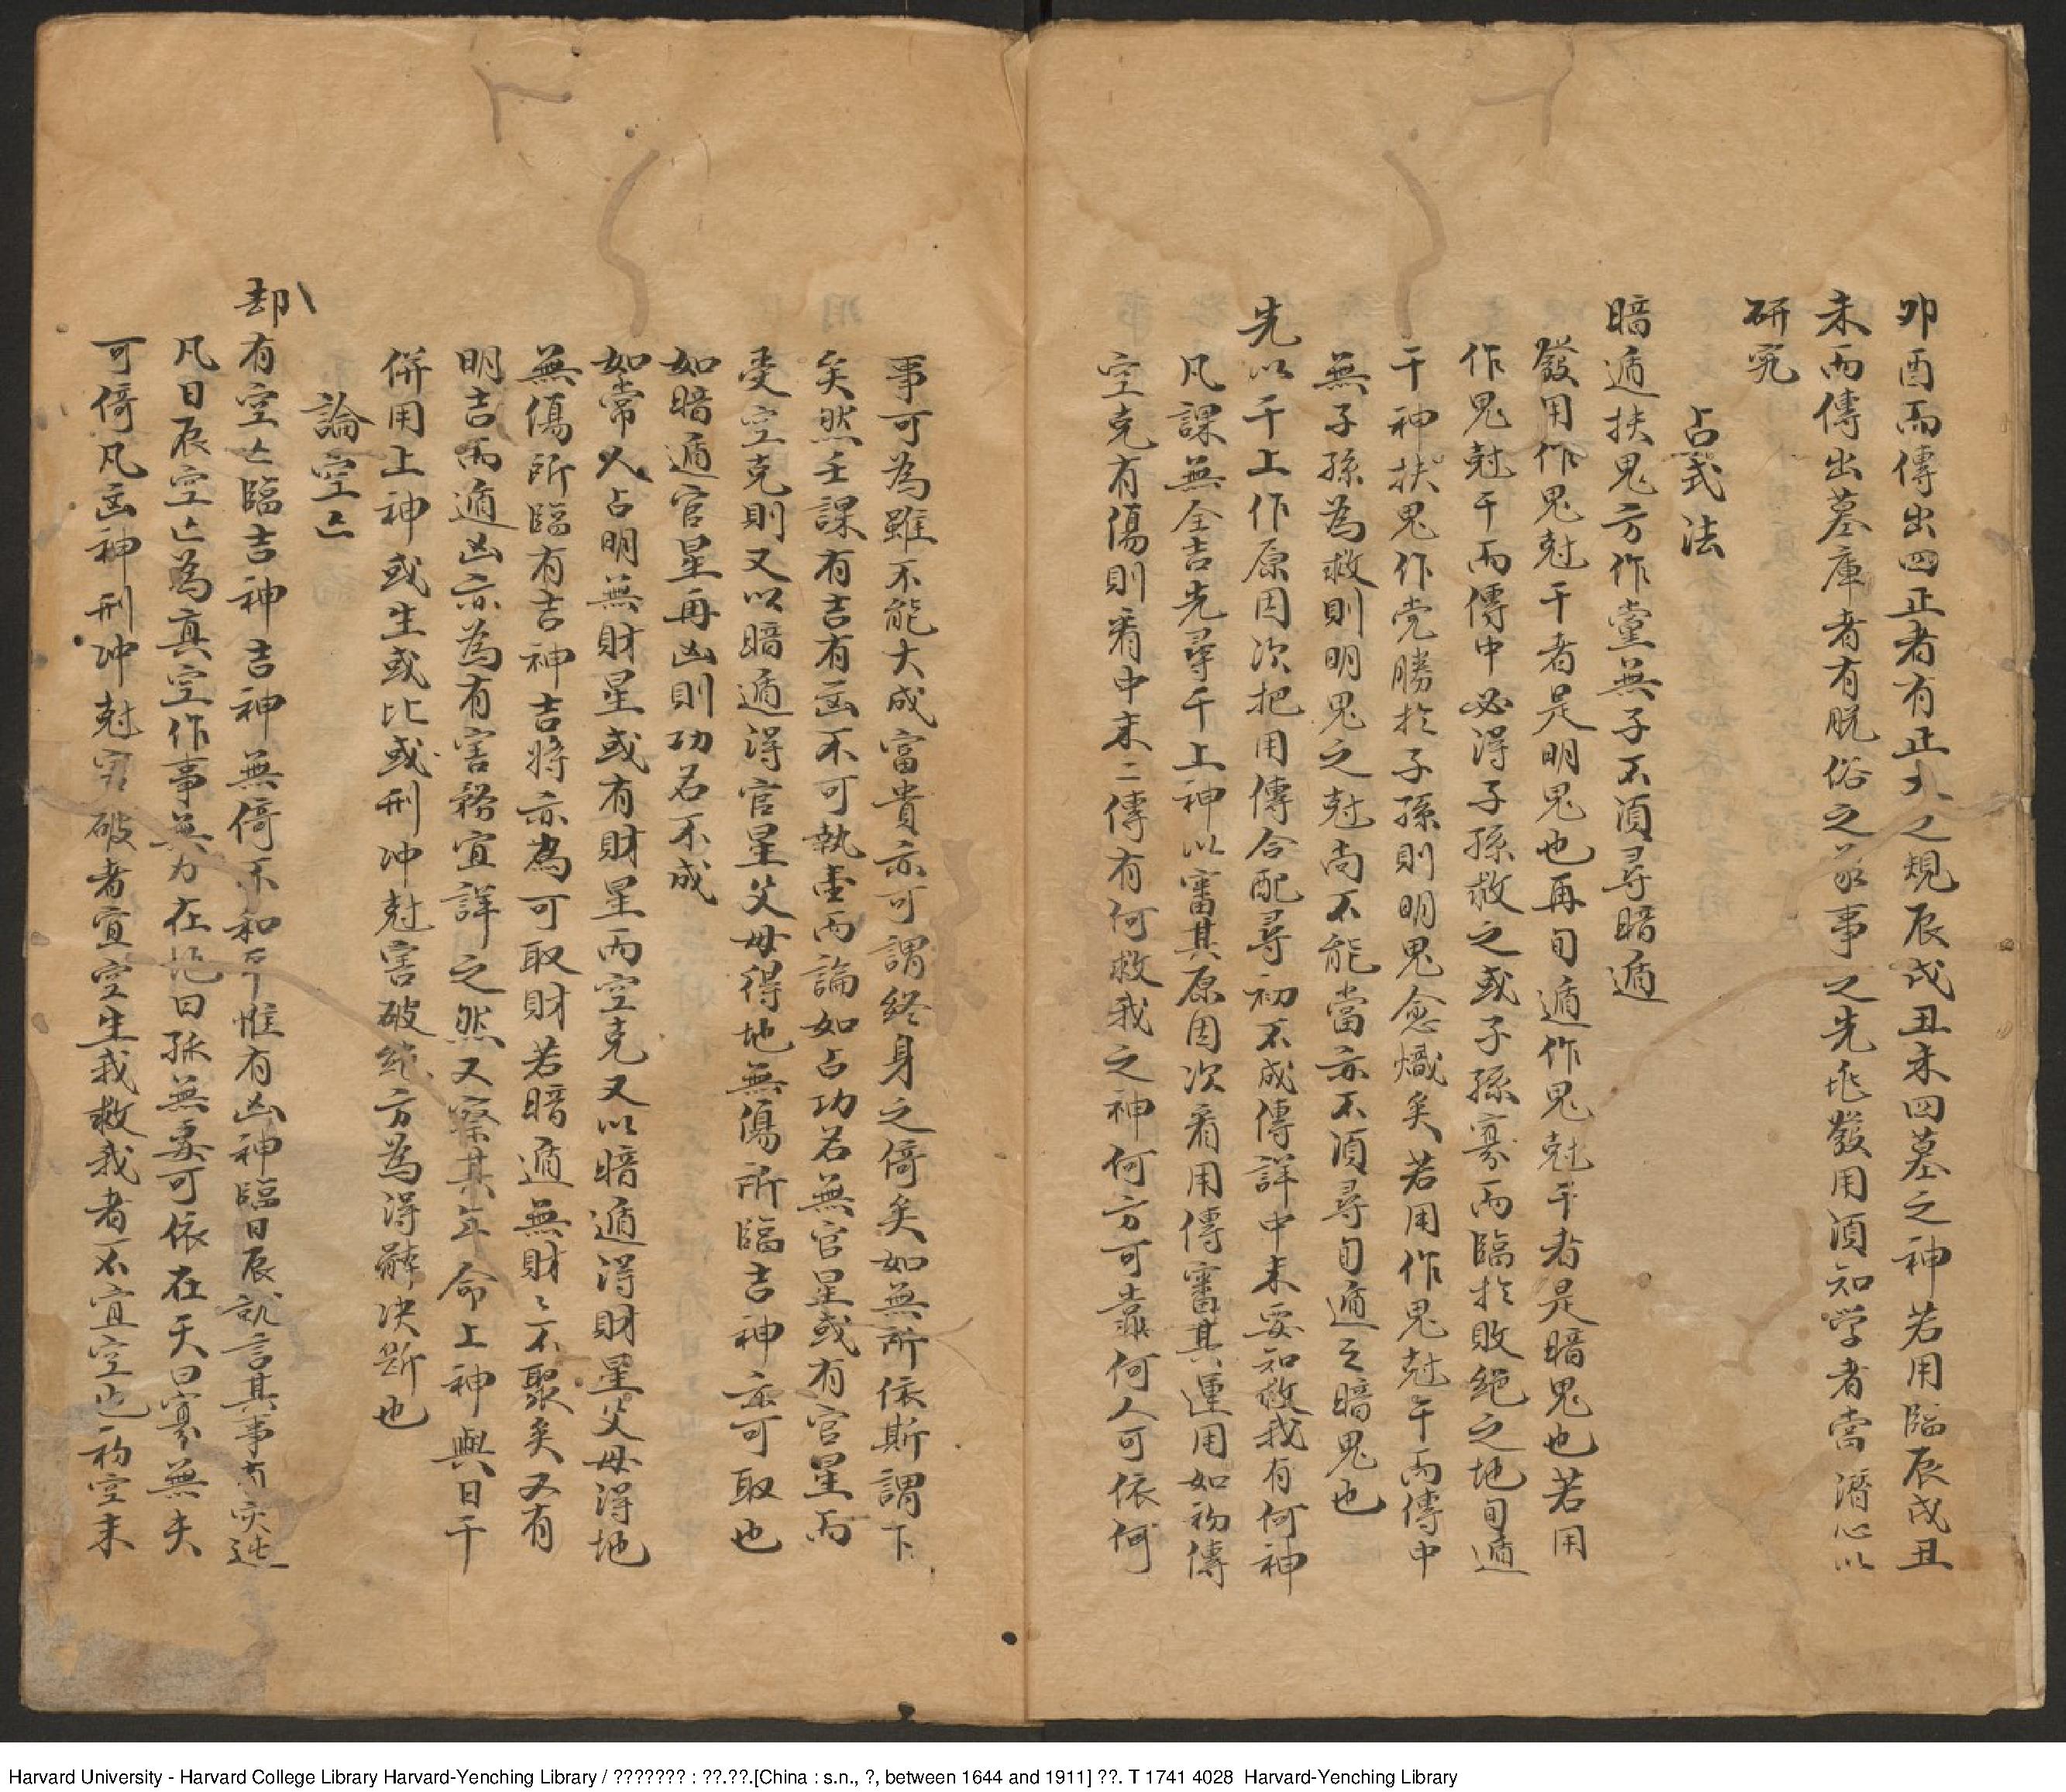 卯酉而傳出四正者有正大之規辰戌丑未四墓之神若用臨辰戌丑
未而傳出墓庫者有脫俗之家事之先兆發用須知学者當潛心以
研究
占式法
暗遁扶鬼方作党無子不須尋暗遁
發用作鬼尅干者是明鬼也再旬遁作鬼尅干者是暗鬼也若用
作鬼尅干而傳中必得子孫救之或子孫寡而臨於敗絕之地旬遁
干神扶鬼作党勝於子孫則明鬼愈熾矣若用作鬼尅干而傳中
無子孫為救則明鬼之尅尚不能當亦不須尋旬遁之暗鬼也
先以干上作原因次把用傳合配尋初不成傳詳中末要知救我有何神
凡課無全吉先尋干上神以審其原因次看用傳審其運用如初傳
空克有傷則看中末二傳有何救我之神何方可靠何人可依何
事可為雖不能大成富貴亦可謂終身之倚矣如無所依斯謂下
矣然壬課有吉有凶不可執壹而論如占功名無官星或有官星而
受空克則又以暗遁得官星父母得地無傷所臨吉神亦可取也
如暗遁官星再凶則功名不成
如常人占明無財星或有財星而空克又以暗遁得財星父母得地
無傷所臨有吉神吉將亦為可取財若暗遁無財〻不聚矣又有
明吉而遁凶亦為有害務宜詳之然又察其年命上神與日干
併用上神或生或比或刑冲尅害破絶方為得辭决斷也
論空亡
却有空亡臨吉神吉神無倚不和平惟有凶神臨日辰訧言其事有灾迍
凡日辰空亡為真空作事無力在地曰孤無妻可依在天曰寡無夫
可倚凡凶神刑冲尅害破者宜空生我救我者不宜空也初空末
Harvard University - Harvard College Library Harvard-Yenching Library / ??????? : ??.??.[China : s.n., ?, between 1644 and 1911] ??. T 1741 4028 Harvard-Yenching Library